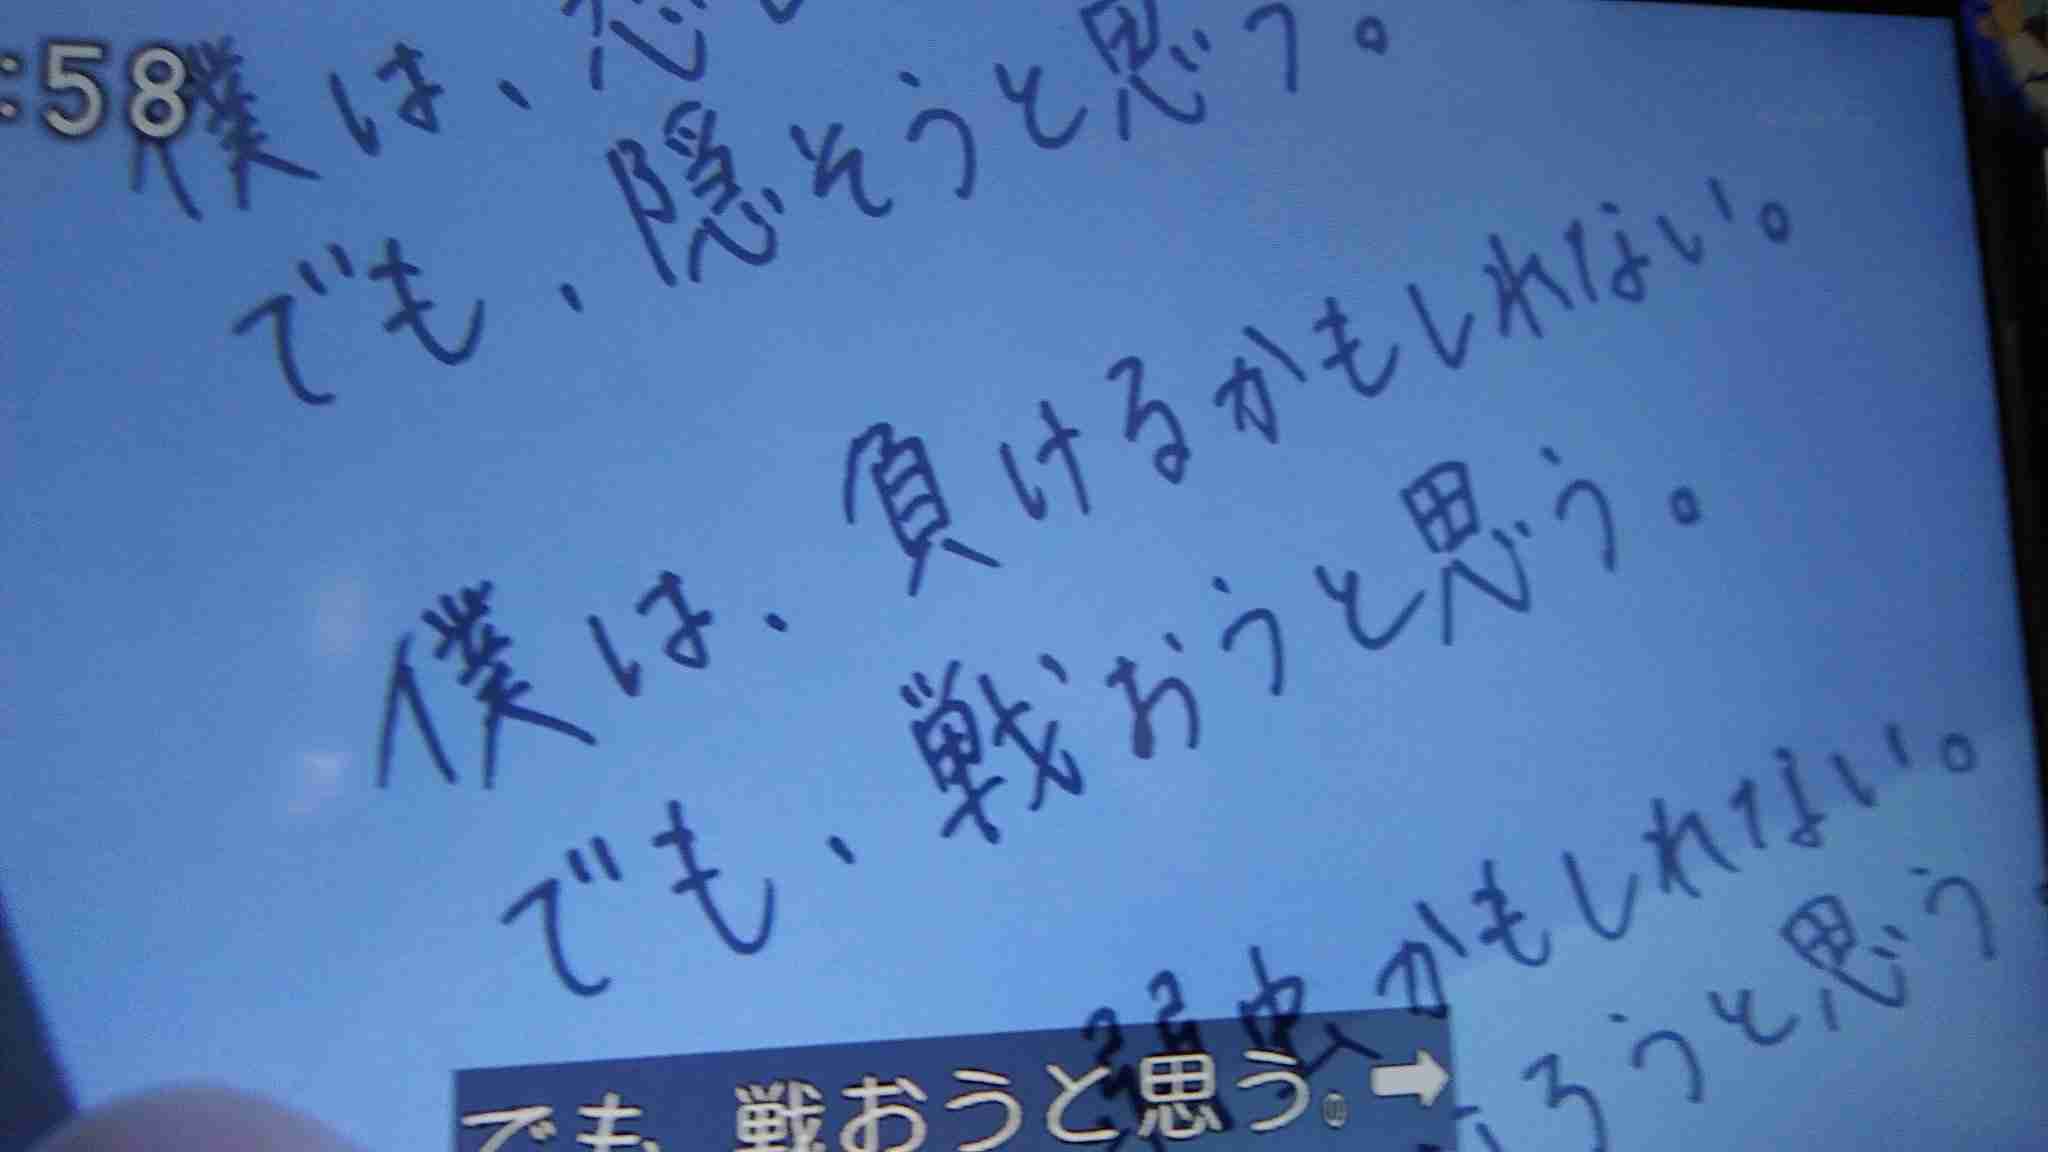 :58
僕は、
でも、隠そうと思う。
僕は、負けるかもしれない。
でも、戦おうと思う。
弱虫かもしれない。
ろうと思う
でも、戦おうと思う。➡